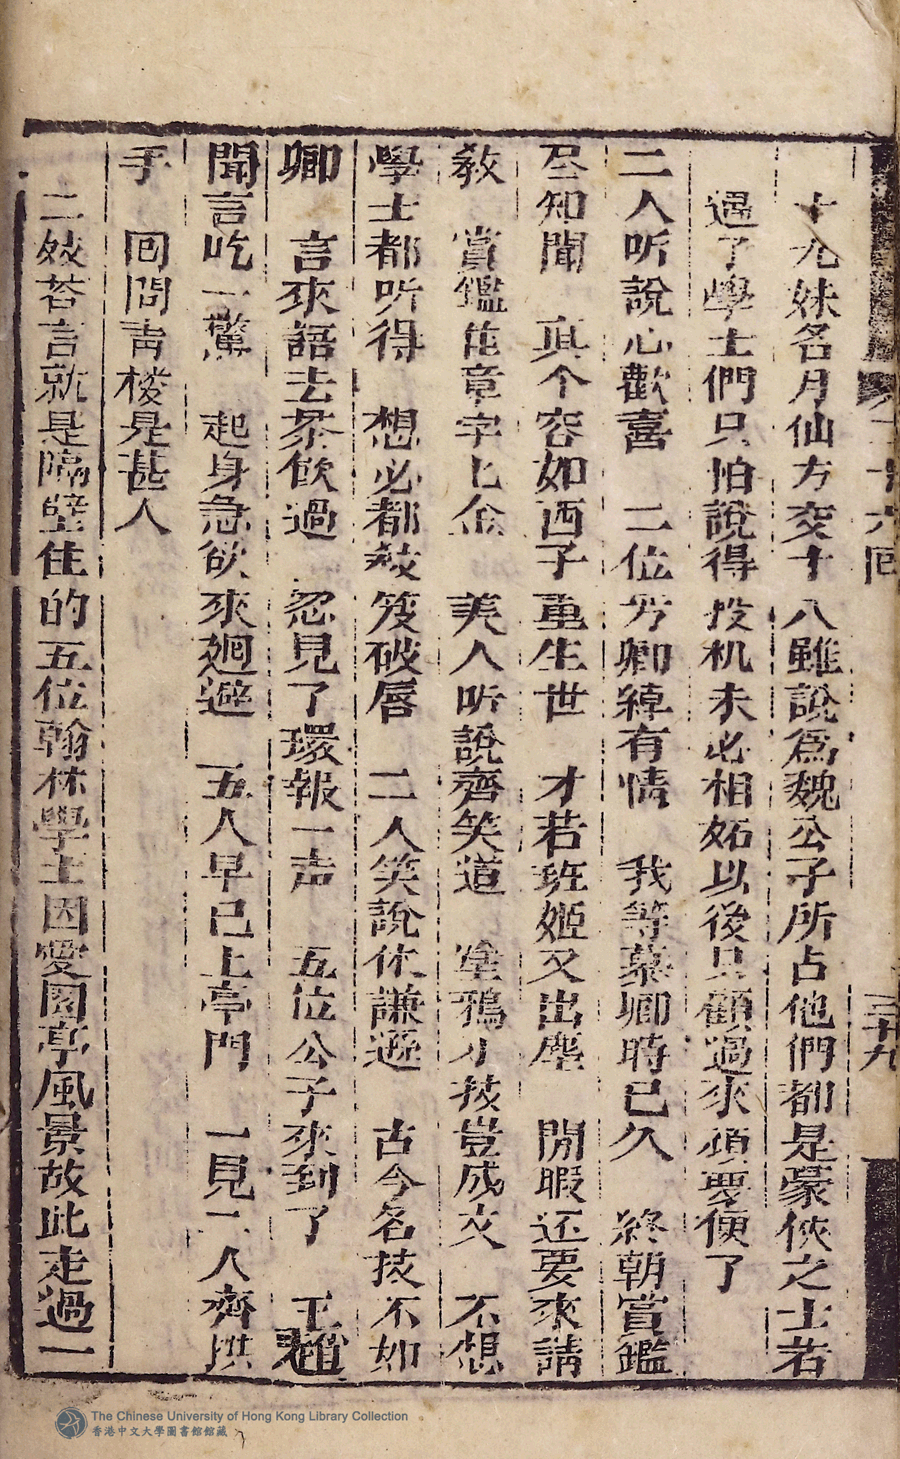 二十六回
三十九
十九妹名月仙方交十八雖說為魏公子所占他們都是豪俠之士若
遇了學士們只怕說得投机未必相妬以後只顧過來頑耍便了
二人听說心歡喜　二位芳卿綽有情　我等慕卿時已久　終朝賞鑑
尽知聞　真个容如西子重生世　才若班姬又出塵　閒暇还要來請
教　賞鑑佳章字匕金　美人听說齊笑道　塗鴉小技豈成文　不想
學士都听得　想必都教笑破唇　二人笑說休謙遜　古今名技不如
卿　言來語去茶飲過　忽見了環報一声　五位公子來到了　王趙
聞言吃一驚　起身急欲來廻避　五人早已上亭門　一見二人齊拱
手　囘問青楼是甚人
二妓荅言就是隔壁住的五位翰林學士因愛園亭風景故此走過一
The Chinese University of Hong Kong Library Collection
香港中文大學圖書館館藏